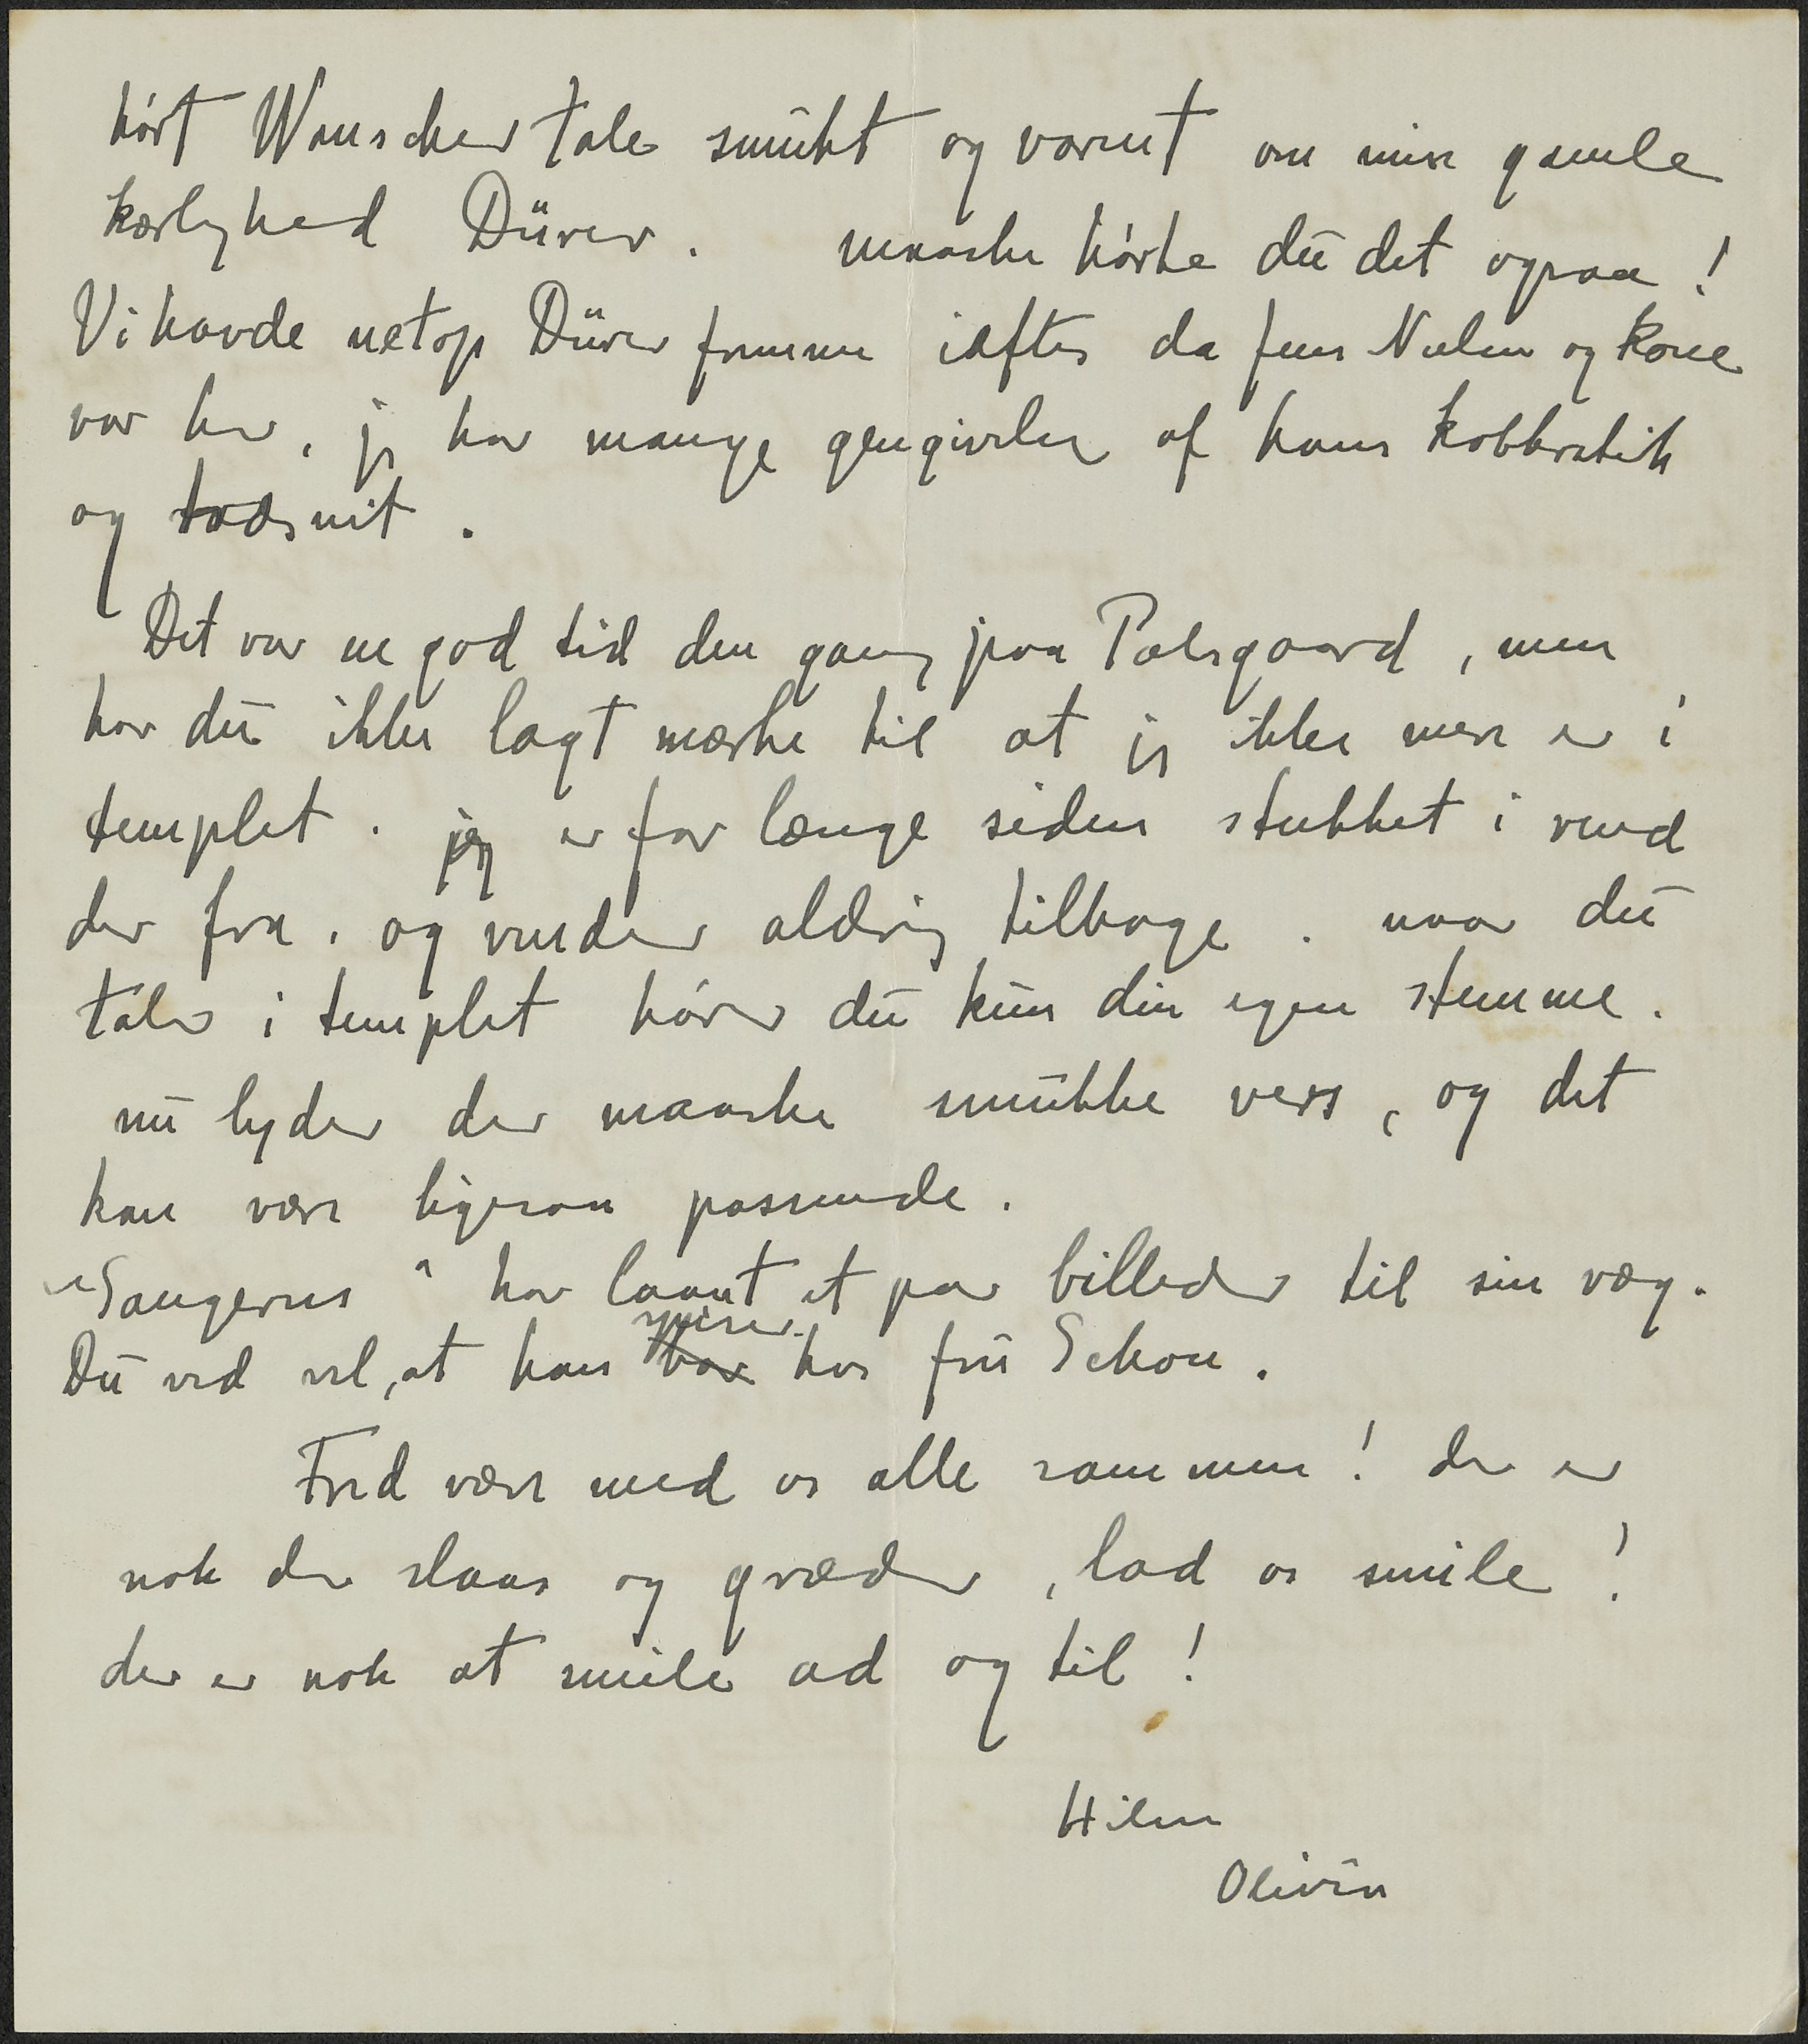 hørt Wanscher tale smukt og varmt om min gamle
kærlighed Dürer. maaske hørte du det ogsaa!
Vi havde netop Dürer fremme iaftes da Jens Nielsen og kone
var her, jeg har mange gengivelser af hans kobberstik
og træsnit.
Det var en god tid den gang paa Palsgaard, men
har du ikke lagt mærke til at jeg ikke mere er i
templet. jeg er for længe siden stukket i rend
der fra. og vender aldrig tilbage. naar du
taler i templet hører du kun din egen stemme.
nu lyder der maaske smukke vers, og det
kan være ligesaa passende.
"Sangeren" har laant et par billeder til sin væg.
Du ved vel, at han spiser hos fru Schou.
Fred være med os alle sammen! der er
nok der slaas og græder, lad os smile!
der er nok at smile ad og til!
Hilsen
Olivia